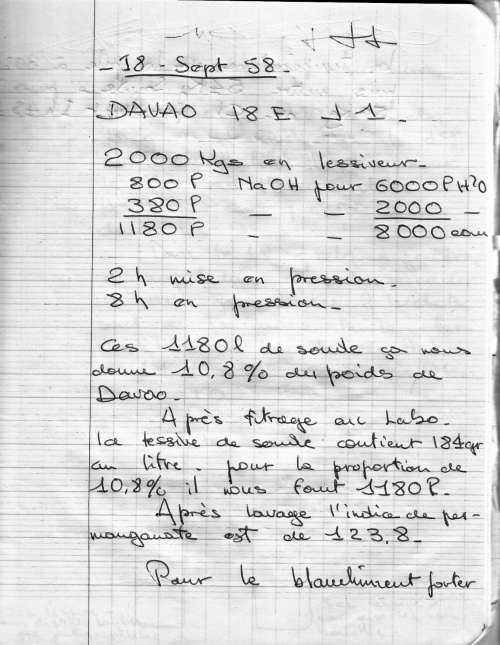 - 18 - Sept 58 -
DAVAO 18 E J 1 -
2000 Kgs en lessiveur -
800 l NaOH pour 6000 l H2O
380 l — — 2000 —
1180 l — — 8000 eau
2 h mise en pression -
8 h en pression -
Ces 1180 l de soude ça nous
donne 10,8 % du poids de
Davao -
Après titrage au Labo -
la lessive de soude contient 184 gr
au litre. pour la proportion de
10,8 % il nous faut 1180 l.
Après lavage l'indice de per-
manganate est de 123,8 -
Pour le blanchiment porter